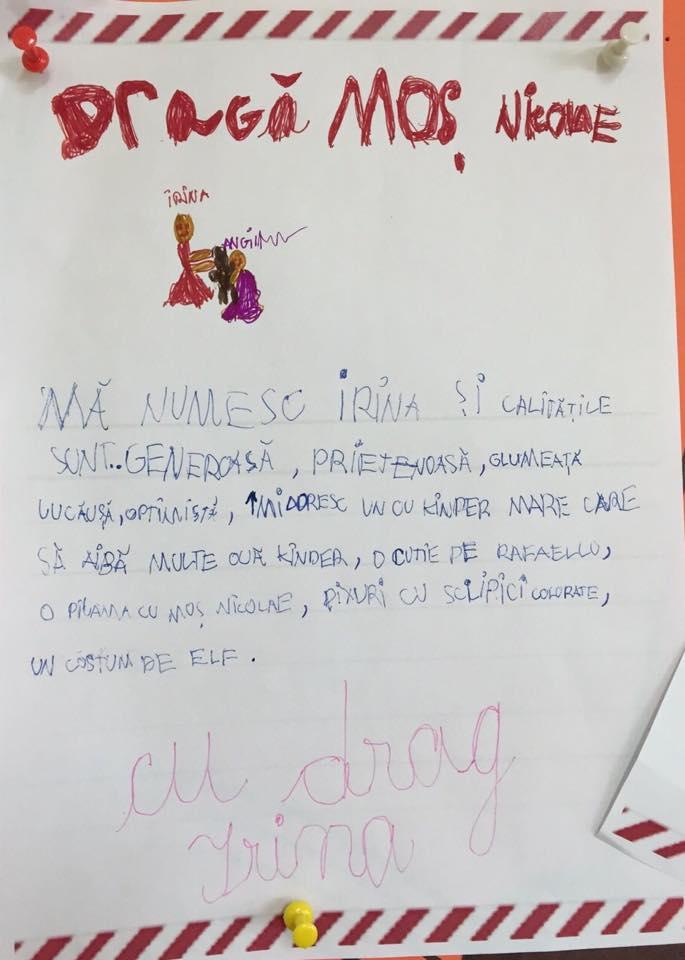 DRAGĂ MOȘ NICOLAE
IRINA
MĂ NUMESC IRINA ȘI CALITĂȚILE
SUNT..GENEROASĂ, PRIETENOASĂ, GLUMEAȚĂ
JUCĂUȘĂ, OPTIMISTĂ, ÎMI DORESC UN OU KINDER MARE CARE
SĂ AIBĂ MULTE OUĂ KINDER, O CUTIE DE RAFAELLO,
O PIJAMA CU MOȘ NICOLAE, PIXURI CU SCLIPICI COLORATE,
UN COSTUM DE ELF.
cu drag
Irina